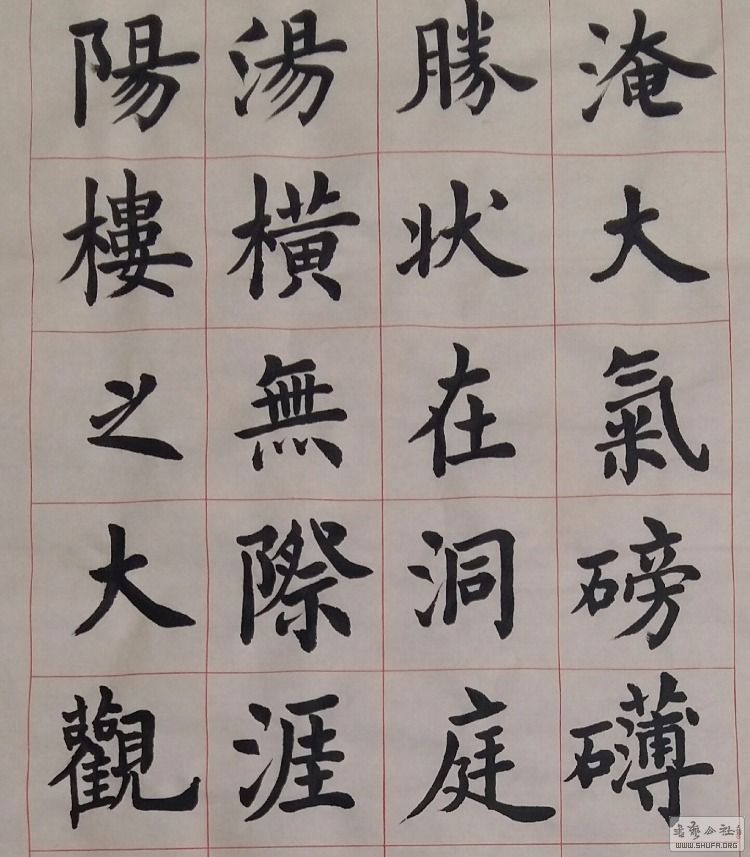 淹大氣磅礴
勝状在洞庭
湯橫無際涯
陽樓之大觀
書藝公社
www.SHUFA.ORG